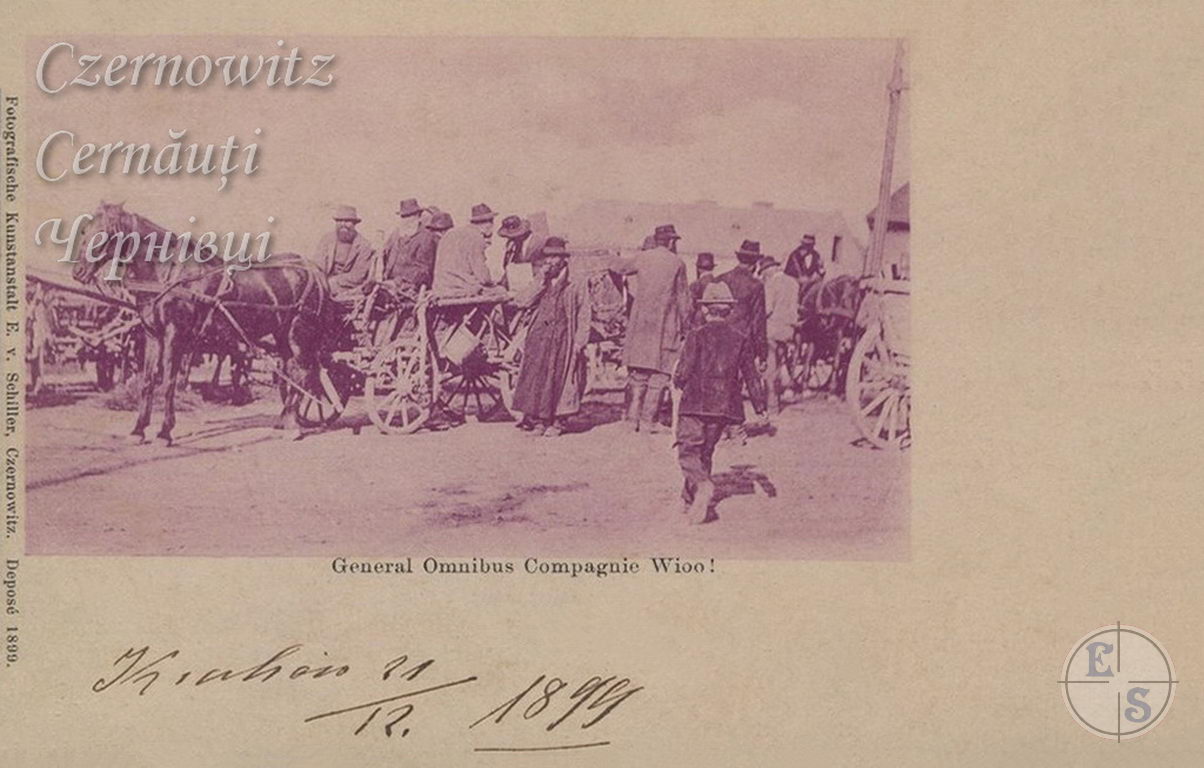 Czernowitz
Cernăuți
Чернівці
Fotografische Kunstanstalt E. v. Schiller, Czernowitz. Deposé 1899.
General Omnibus Compagnie Wioo!
Kraków 21/12. 1899
E
S